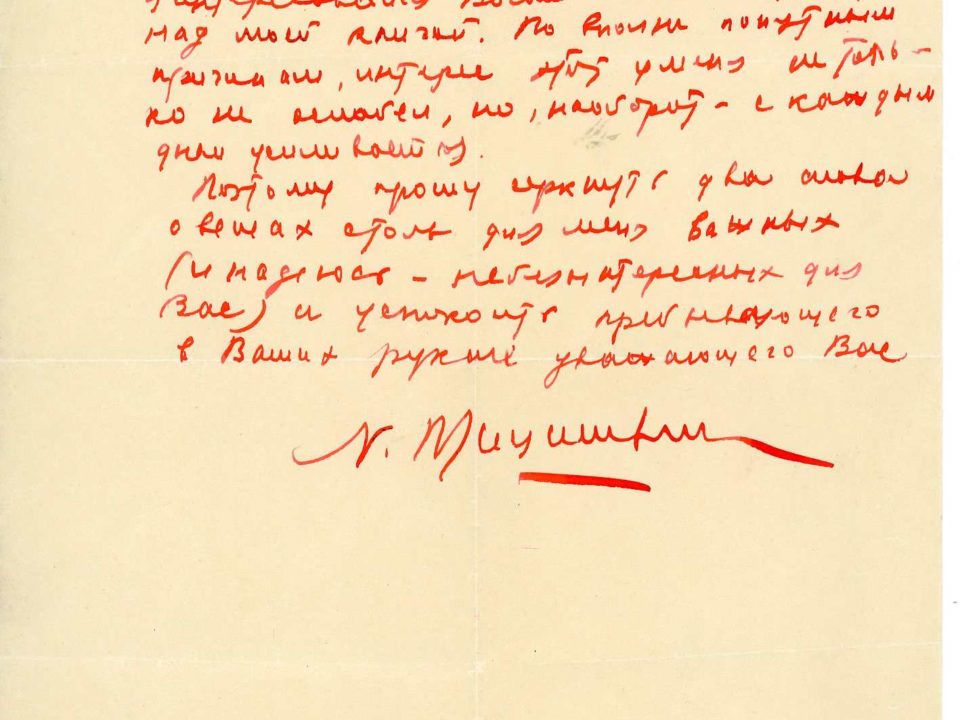 над моей книгой. По вполне понятным
причинам, интерес этот у меня не толь-
ко не ослабел, но, наоборот - с каждым
днем усиливается.
Поэтому прошу черкнуть два слова
о вещах столь для меня важных
(и надеюсь - небезинтересных для
Вас) и успокоить пребывающего
в Ваших руках уважающего Вас
N. Мицишвили